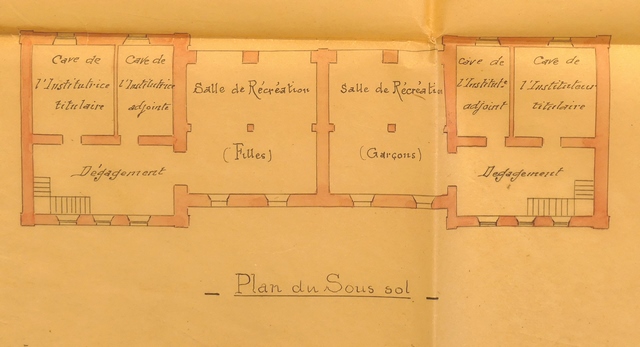 Cave de
l'Institutrice
titulaire
Cave de
l'Institutrice
adjointe
Salle de Récréation
(Filles)
Salle de Récréation
(Garçons)
Cave de
l'Institutr
adjoint
Cave de
l'Instituteur
titulaire
Dégagement
Degagement
Plan du Sous sol